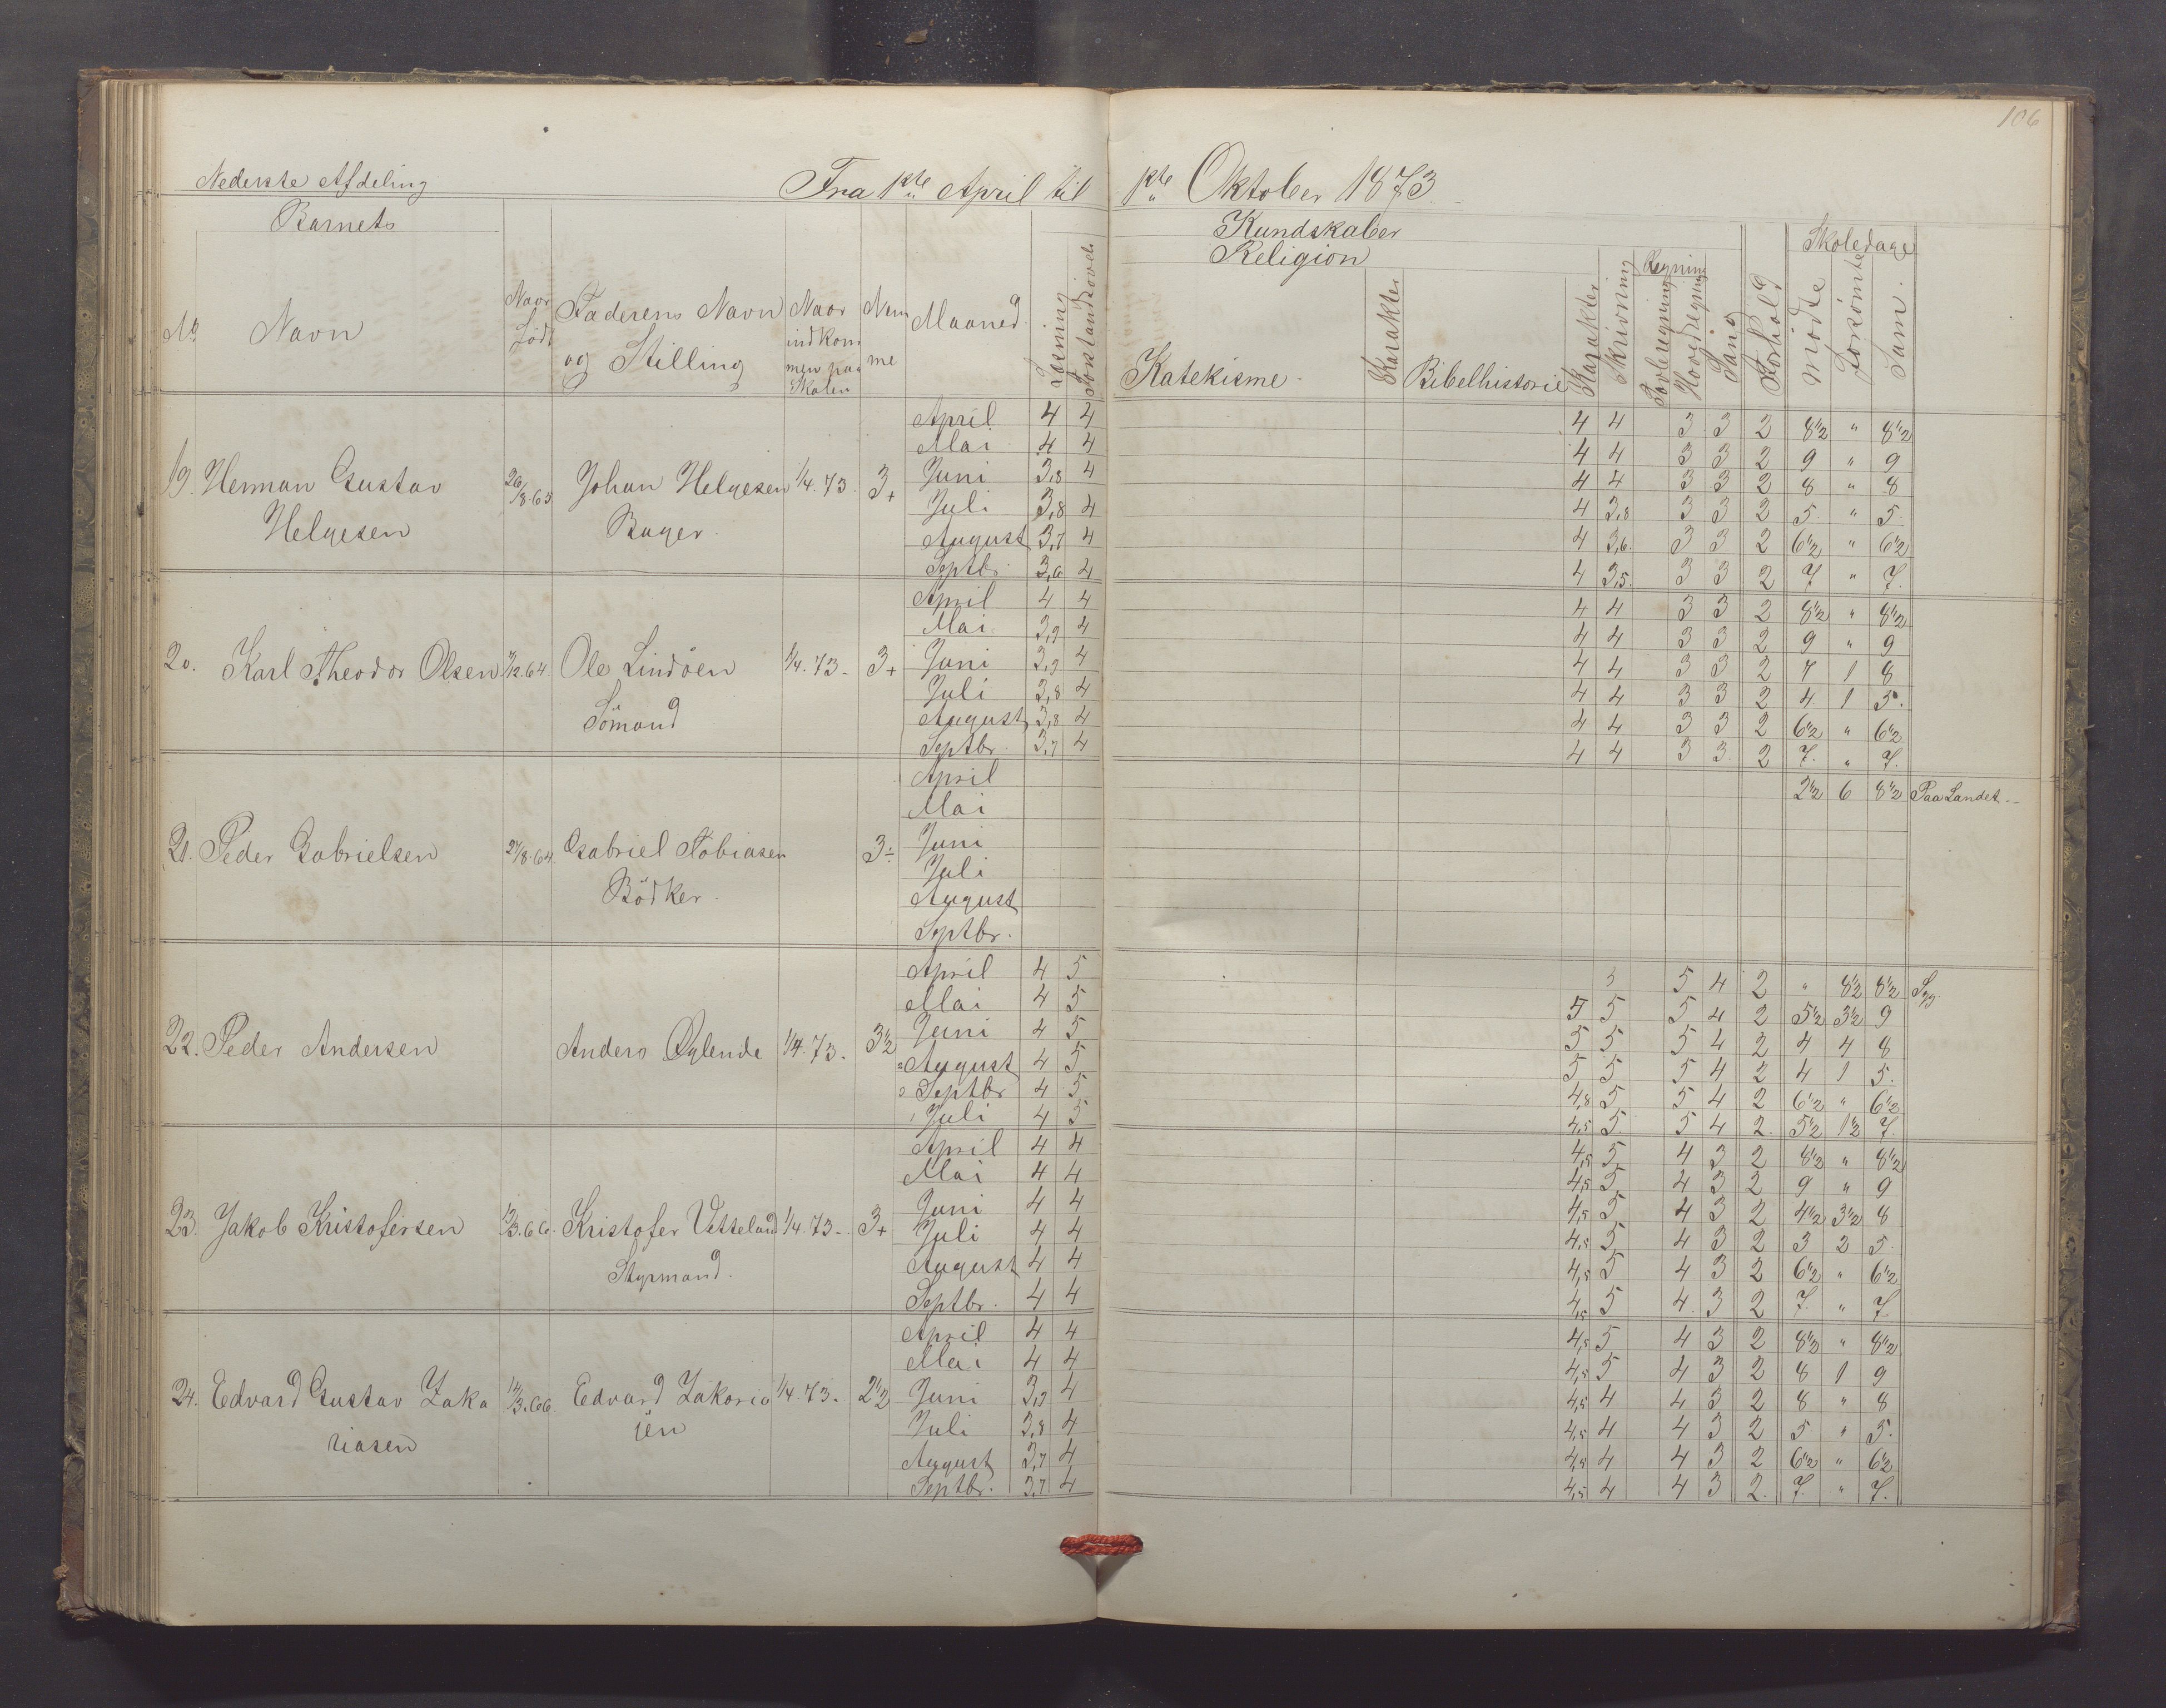 106
Nederste Afdeling
Fra 1ste April til 1ste Oktober 1873.
Barnets
Kundskaber
Religion
Regning
Skoledage
No Navn Naar Født Faderens Navn og Stilling Naar indkommen paa Skolen Nemme Maaned Læsning Forstandsøvelse Katekisme Karakter Bibelhistorie Karakter Skrivning Tavleregning Hovedregning Sang Forhold mødte forsömte Sum.
April 4 4 4 4 3 3 2 8 1/2 " 8 1/2
Mai 4 4 4 4 3 3 2 9 " 9
19. Herman Gustav 26/8.65 Johan Helgesen 1/4.73. 3+ Juni 3,8 4 4 4 3 3 2 8 " 8
Juli 3,8 4 4 3,8 3 3 2 5. " 5.
Helgesen Bager. August 3,7 4 4 3,6. 3 3 2 6 1/2 " 6 1/2
Septbr. 3,6 4 4 3,5. 3 3 2 7 " 7.
April 4 4 4 4 3 3 2 8 1/2 " 8 1/2
Mai. 3,9 4 4 4 3 3 2 9 " 9
20. Karl Theodor Olsen /12.64 Ole Lindöen 1/4.73- 3+ Juni 3,9 4 4 4 3 3 2 7 1 8
Juli 3,8 4 4 4 3 3 2 4 1 5.
Sömand August 3,8 4 4 4 3 3 2 6 1/2 " 6 1/2
Septbr. 3,7 4 4 4 3 3. 2 7. " 7.
April 2 1/2 6 8 1/2 Paa Landet.-
Mai
21. Peder Gabrielsen 27/8.64 Gabriel Tobiasen 3÷ Juni
Juli
Bödker. August
Septbr.
April 4 5 5 4 2 " 8 1/2 8 1/2 Syg
Mai 4 5 5 5 5 4 2 5 1/2 3 1/2 9
22. Peder Andersen Anders Øglende 1/4.73. 3 1/2 Juni 4 5 5 5 5 4 2 4 4 8
2 August 4 5 5 5 5 4 2 4 1 5.
3 Septbr 4 5 4,8 5 5 4 2 6 1/2 " 6 1/2
1 Juli 4 5 4,5 5 5 4 2. 5 1/2 1 1/2 7.
April 4 4 4,5 5 4 3 2 8 1/2 " 8 1/2
Mai 4 4 4,5 5 4 3 2 9 " 9
23. Jakob Kristofersen 13/3.66. Kristofer Vetteland 1/4.73-. 3+ Juni 4 4 4,5 5 4 3 2 4 1/2 3 1/2 8
Juli 4 4 4,5 5 4 3 2 3 2 5.
Styrmand. August 4 4 4,5 5 4 3 2 6 1/2 " 6 1/2
Septbr. 4 4 4,5 5 4. 3 2 7. " 7.
April 4 4 4,5 5 4 3 2 8 1/2 " 8 1/2
Mai 4 4 4,5 5 4 3 2 8 1 9
24. Edvard Gustav Zaka /3.66. Edvard Zakaria 1/4.73. 2 1/2 Juni 3,9 4 4,5 4 4 3 2 8 " 8
riasen sen Juli 3,8 4 4,5 4 4 3 2 5 " 5.
August 3,7 4 4,5 4 4 3 2 6 1/2 " 6 1/2
Septbr. 3,7 4 4,5 4 4 3 2. 7. " 7.